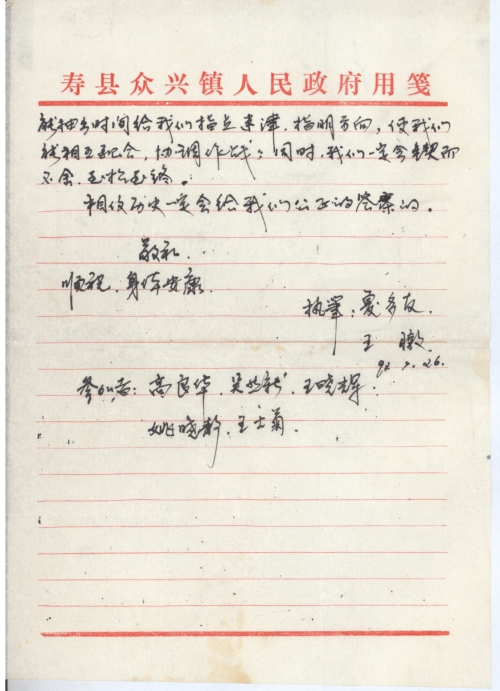 寿县众兴镇人民政府用笺
能抽出时间给我们指点迷津，指明方向，使我们
能相互配合，协调作战；同时，我们一定会锲而
不舍，至始至终。
相信历史一定会给我们公正的答案的。
敬礼
顺祝，身体安康
执笔：夏多友
王
92.7.26.
参加者：高良华、吴 、王晓辉
姚晓 、王士菊.